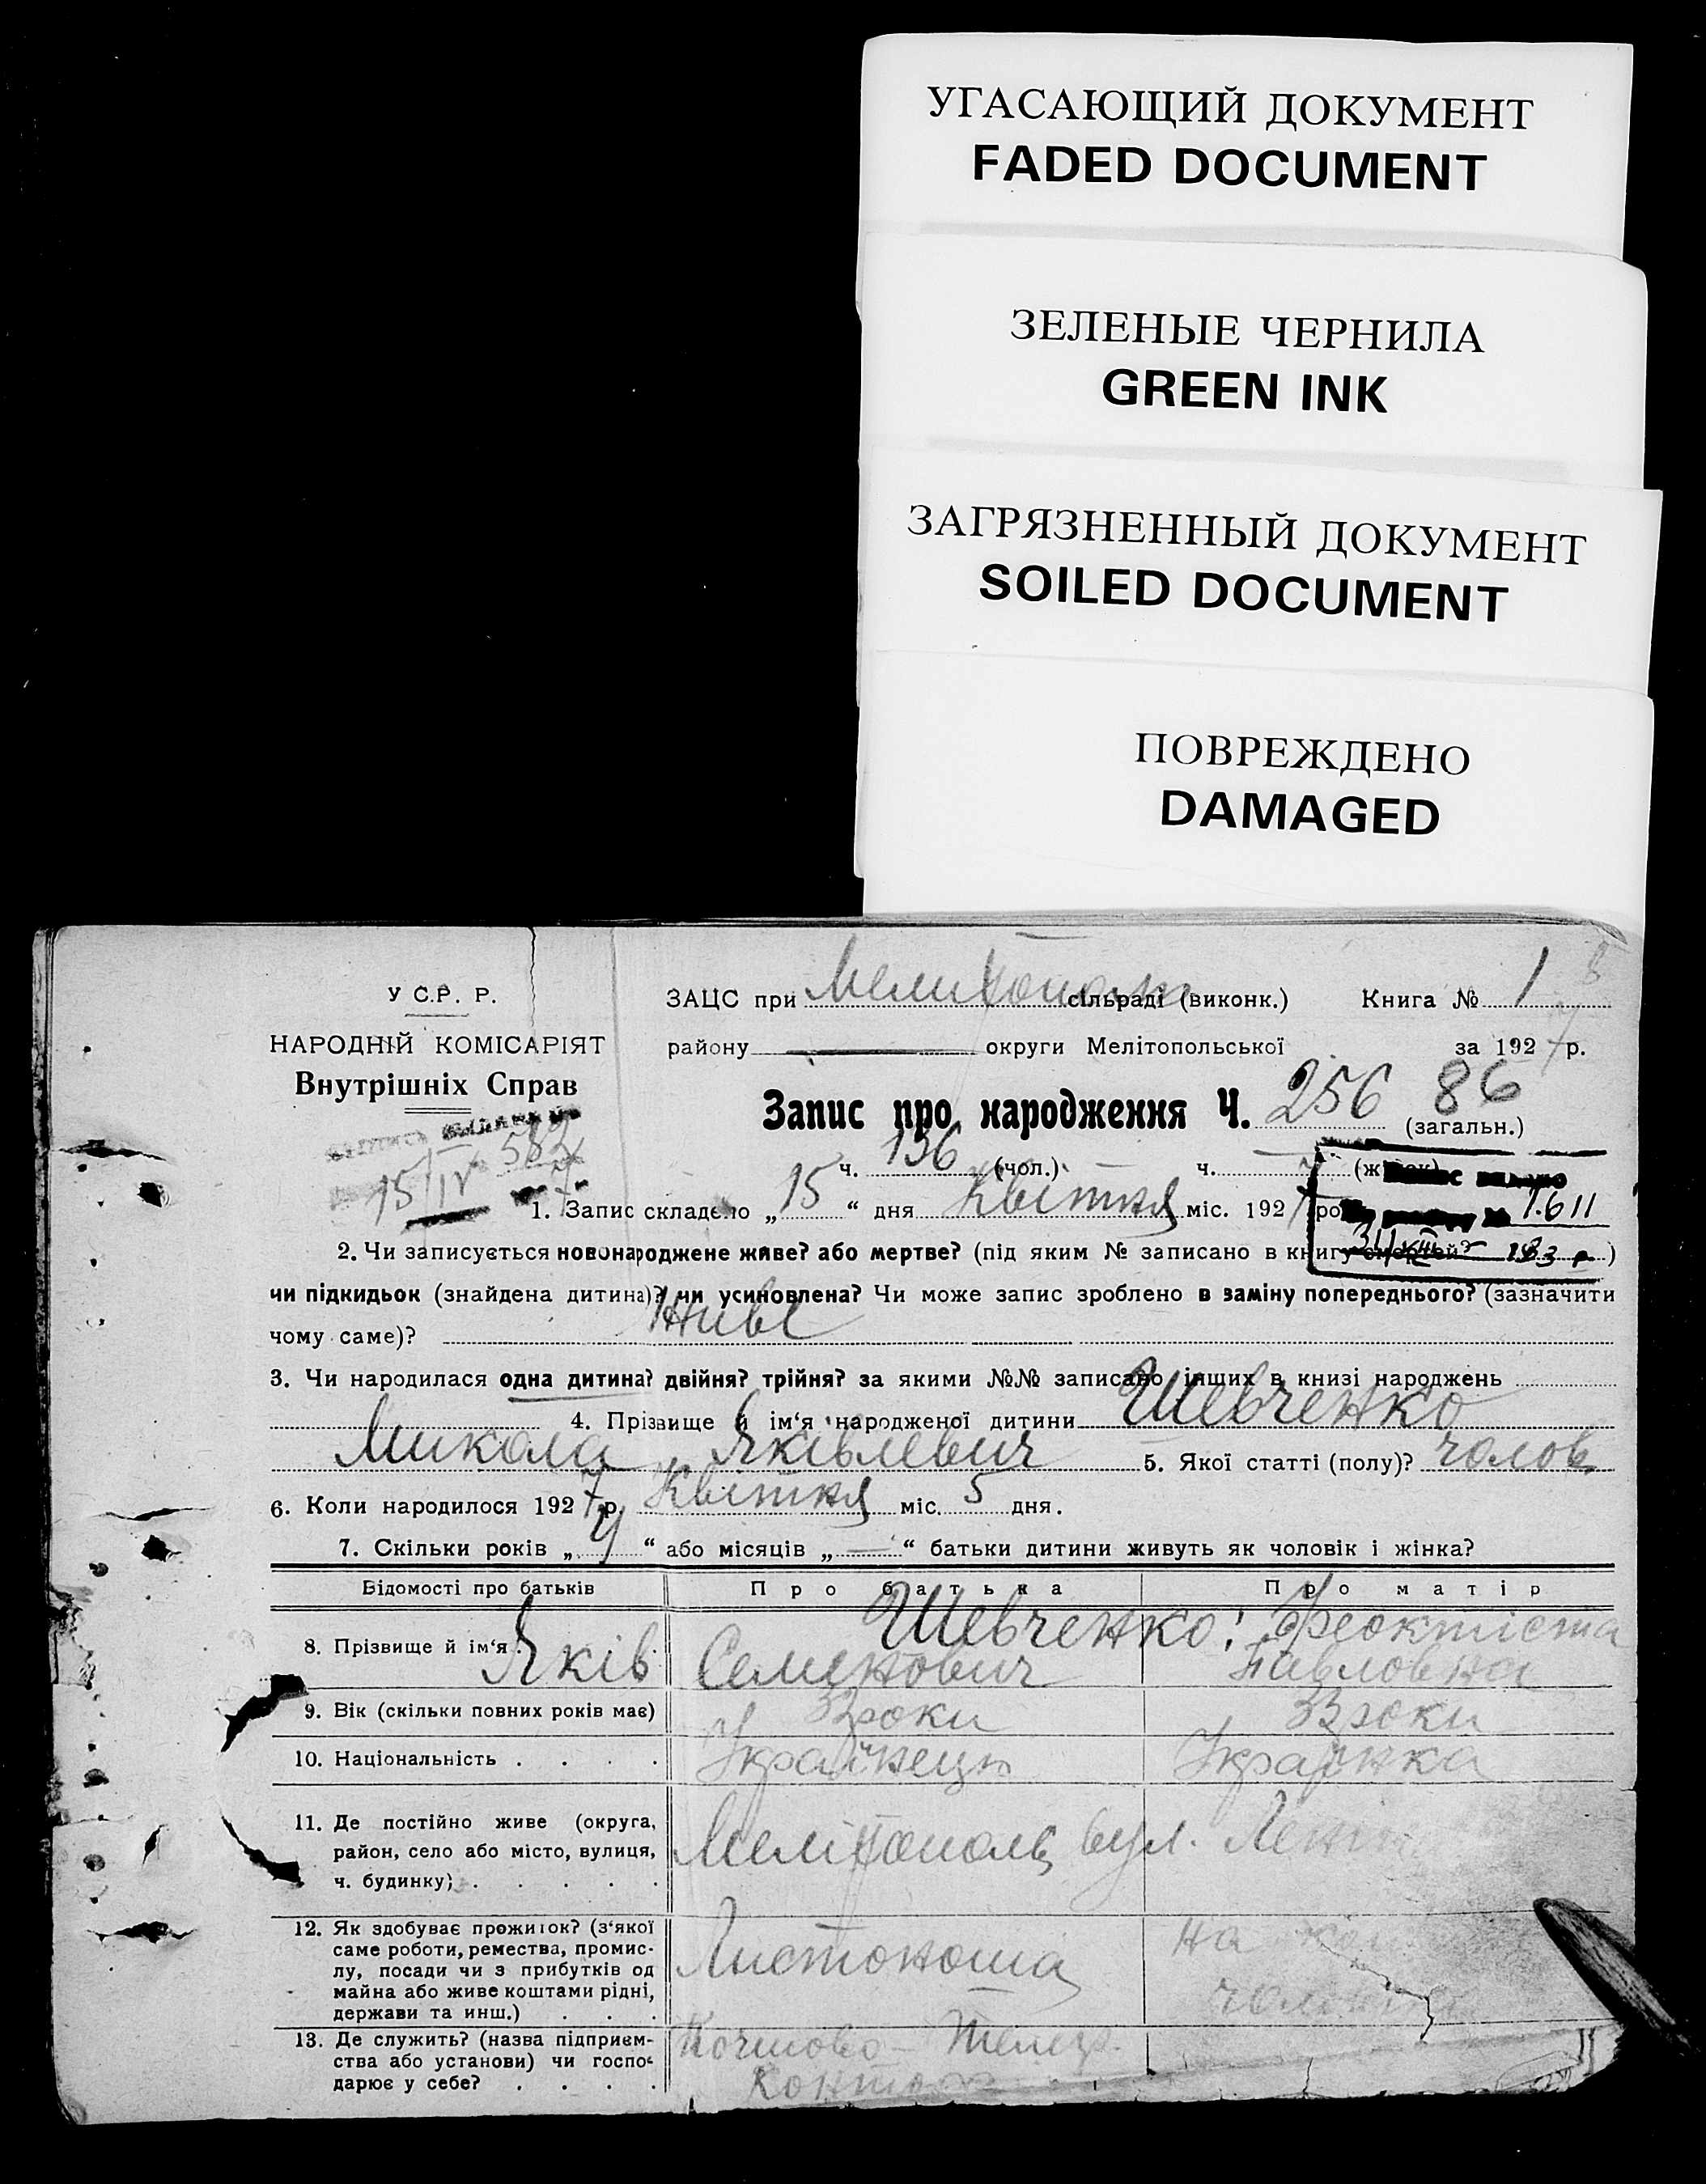 УГАСАЮЩИЙ ДОКУМЕНТ
FADED DOCUMENT
ЗЕЛЕНЫЕ ЧЕРНИЛА
GREEN INK
ЗАГРЯЗНЕННЫЙ ДОКУМЕНТ
SOILED DOCUMENT
ПОВРЕЖДЕНО
DAMAGED
У С.Р. Р.
НАРОДНІЙ КОМІСАРІЯТ
Внутрішніх Справ
582
15/IV 7
ЗАЦС при сільраді (виконк.) Книга № 1
району — округи Мелітопольської за 1927 р.
Запис про народження Ч. 256 86 (загальн.)
ч. 136 (чол.) ч. — (жінок)
1.611
1. Запис складено „15“ дня Квітня міс. 1927 ро
2. Чи записується новонароджене живе? або мертве? (під яким № записано в книгу смертей? )
чи підкидьок (знайдена дитина)? чи усиновлена? Чи може запис зроблено в заміну попереднього? (зазначити
чому саме)? Живе
3. Чи народилася одна дитина? двійня? трійня? за якими №№ записано інших в книзі народжень
4. Прізвище й ім'я народженої дитини Шевченко
Микола Яківлевич 5. Якої статті (полу)? чолов.
6. Коли народилося 1927 р. Квітня міс. 5 дня.
7. Скільки років „4“ або місяців „—“ батьки дитини живуть як чоловік і жінка?
Відомості про батьків Про батька Про матір
8. Прізвище й ім'я Шевченко: Феоктіста
Яків Семенович Павловна
9. Вік (скільки повних років має) роки 33 роки
10. Національність . . . . Українець Українка
11. Де постійно живе (округа,
район, село або місто, вулиця,
ч. будинку) . . . . . Мелітополь, вул.
12. Як здобуває прожиток? (з'якої
саме роботи, ремества, промис-
лу, посади чи з прибутків од
майна або живе коштами рідні,
держави та инш.) . . . Листоноша на
13. Де служить? (назва підприєм-
ства або установи) чи госпо-
дарює у себе? . . . .